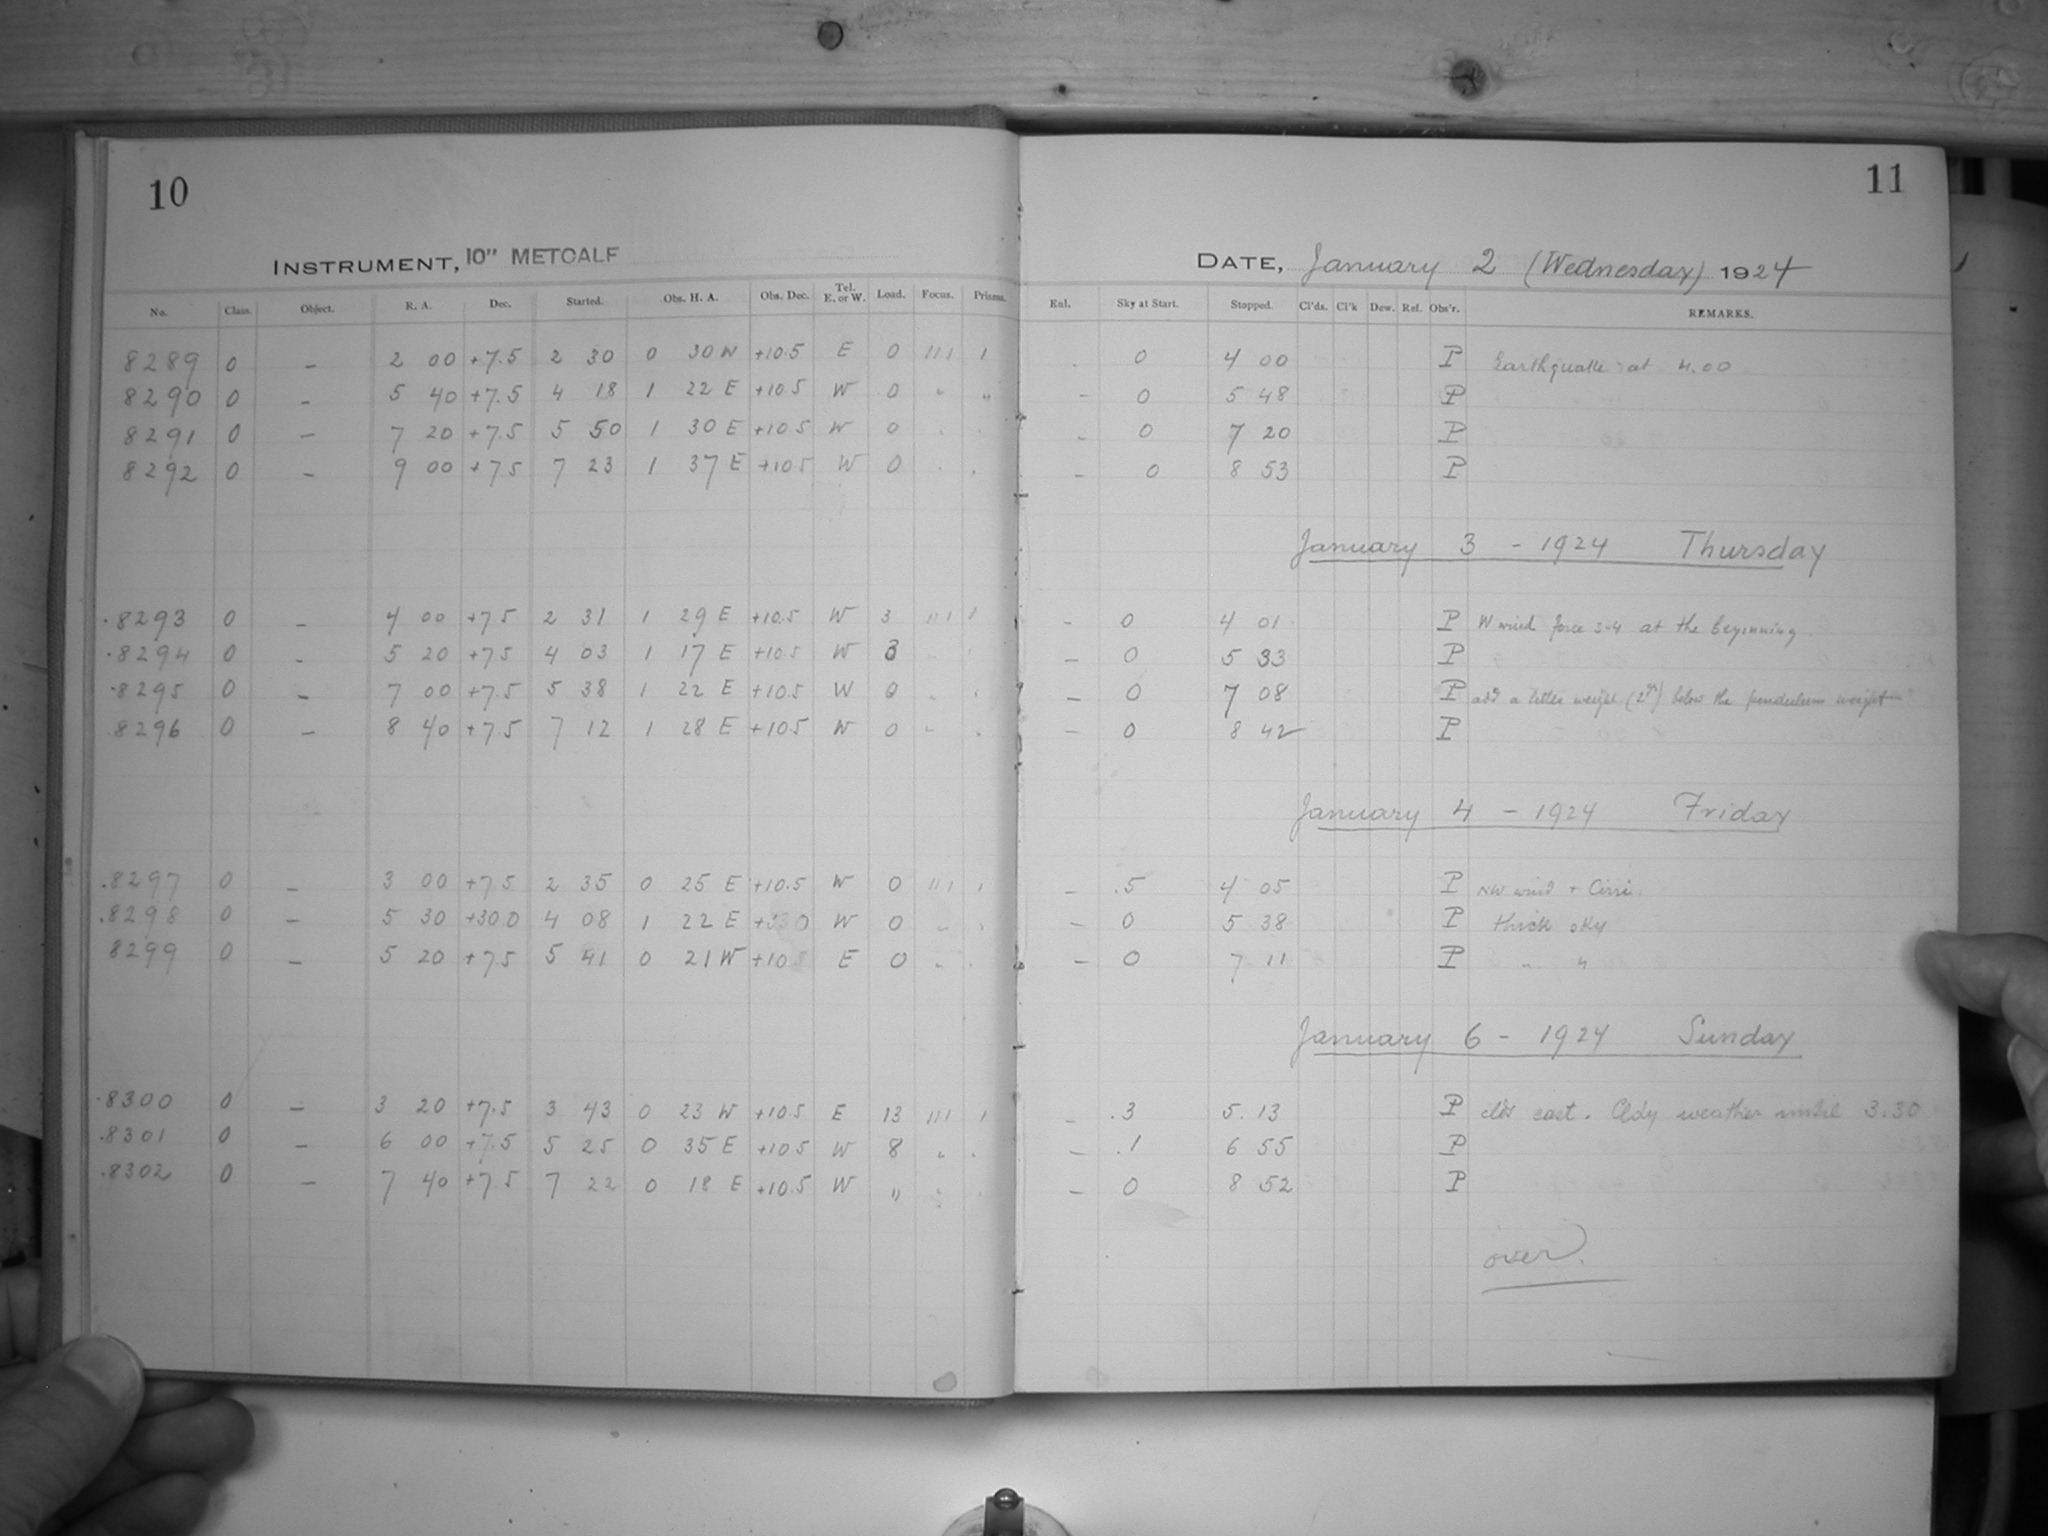 10
11
INSTRUMENT, 10" METCALF
DATE, January 2 (Wednesday) 1924
No. Class. Object. R. A. Dec. Started. Obs. H. A. Obs. Dec. Tel. E. or W. Load. Focus. Prisms. Enl. Sky at Start. Stopped. Cl'ds. Cl'k Dew. Ref. Obs'r. REMARKS.
8289 0 – 2 00 +7.5 2 30 0 30 W +10.5 E 0 111 1 0 4 00 P Earthquake at 4.00
8290 0 – 5 40 +7.5 4 18 1 22 E +10.5 W 0 " " – 0 5 48 P
8291 0 – 7 20 +7.5 5 50 1 30 E +10.5 W 0 " " – 0 7 20 P
8292 0 – 9 00 +7.5 7 23 1 37 E +10.5 W 0 " " – 0 8 53 P
January 3 – 1924 Thursday
.8293 0 – 4 00 +7.5 2 31 1 29 E +10.5 W 3 111 1 – 0 4 01 P W wind force 3-4 at the beginning.
.8294 0 – 5 20 +7.5 4 03 1 17 E +10.5 W 3 " " – 0 5 33 P
.8295 0 – 7 00 +7.5 5 38 1 22 E +10.5 W 0 " " – 0 7 08 P add a little weight below the pendulum weight
.8296 0 – 8 40 +7.5 7 12 1 28 E +10.5 W 0 " " – 0 8 42 P
January 4 – 1924 Friday
.8297 0 – 3 00 +7.5 2 35 0 25 E +10.5 W 0 111 1 – .5 4 05 P NW wind + Cirri.
.8298 0 – 5 30 +30.0 4 08 1 22 E +33.0 W 0 " " – 0 5 38 P thick sky
8299 0 – 5 20 +7.5 5 41 0 21 W +10.5 E 0 " " – 0 7 11 P " "
January 6 – 1924 Sunday
.8300 0 – 3 20 +7.5 3 43 0 23 W +10.5 E 13 111 1 – .3 5.13 P clds east. Cldy weather until 3.30
.8301 0 – 6 00 +7.5 5 25 0 35 E +10.5 W 8 " " – .1 6 55 P
.8302 0 – 7 40 +7.5 7 22 0 18 E +10.5 W " " " – 0 8 52 P
over.